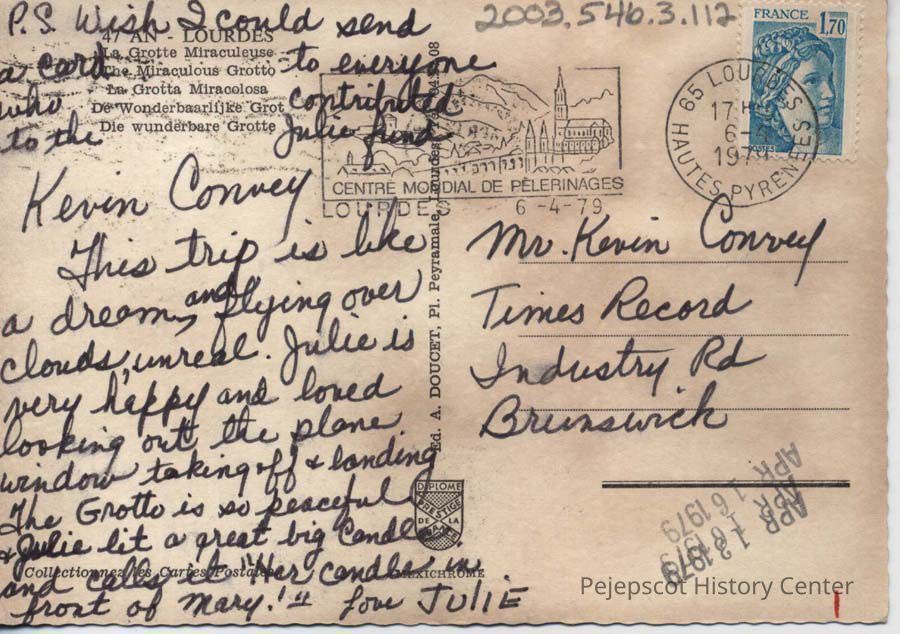 P.S. Wish I could send
a card to everyone
who contributed
to the Julie fund
47 AN - LOURDES
La Grotte Miraculeuse
The Miraculous Grotto
La Grotta Miracolosa
De Wonderbaarlijke Grot
Die wunderbare Grotte
Kevin Convey
This trip is like
a dream, and flying over
clouds, unreal. Julie is
very happy and loved
looking out the plane
window taking off & landing
The Grotto is so peaceful
& Julie lit a great big Candle
and calls it "Her candle in
front of Mary!" Love JULIE
Collectionnez les Cartes Postales
MEXICHROME
Ed. A. DOUCET, Pl. Peyramale, Lourdes
DIPLOME
PRESTIGE
DE LA
2003.546.3.112
FRANCE
1,70
POSTES
65 LOURDES
17 H
6-4
1979
HAUTES PYRENEES
CENTRE MONDIAL DE PÈLERINAGES
LOURDES 6-4-79
Mr. Kevin Convey
Times Record
Industry Rd
Brunswick
APR 16 1979
APR 16 1979
Pejepscot History Center